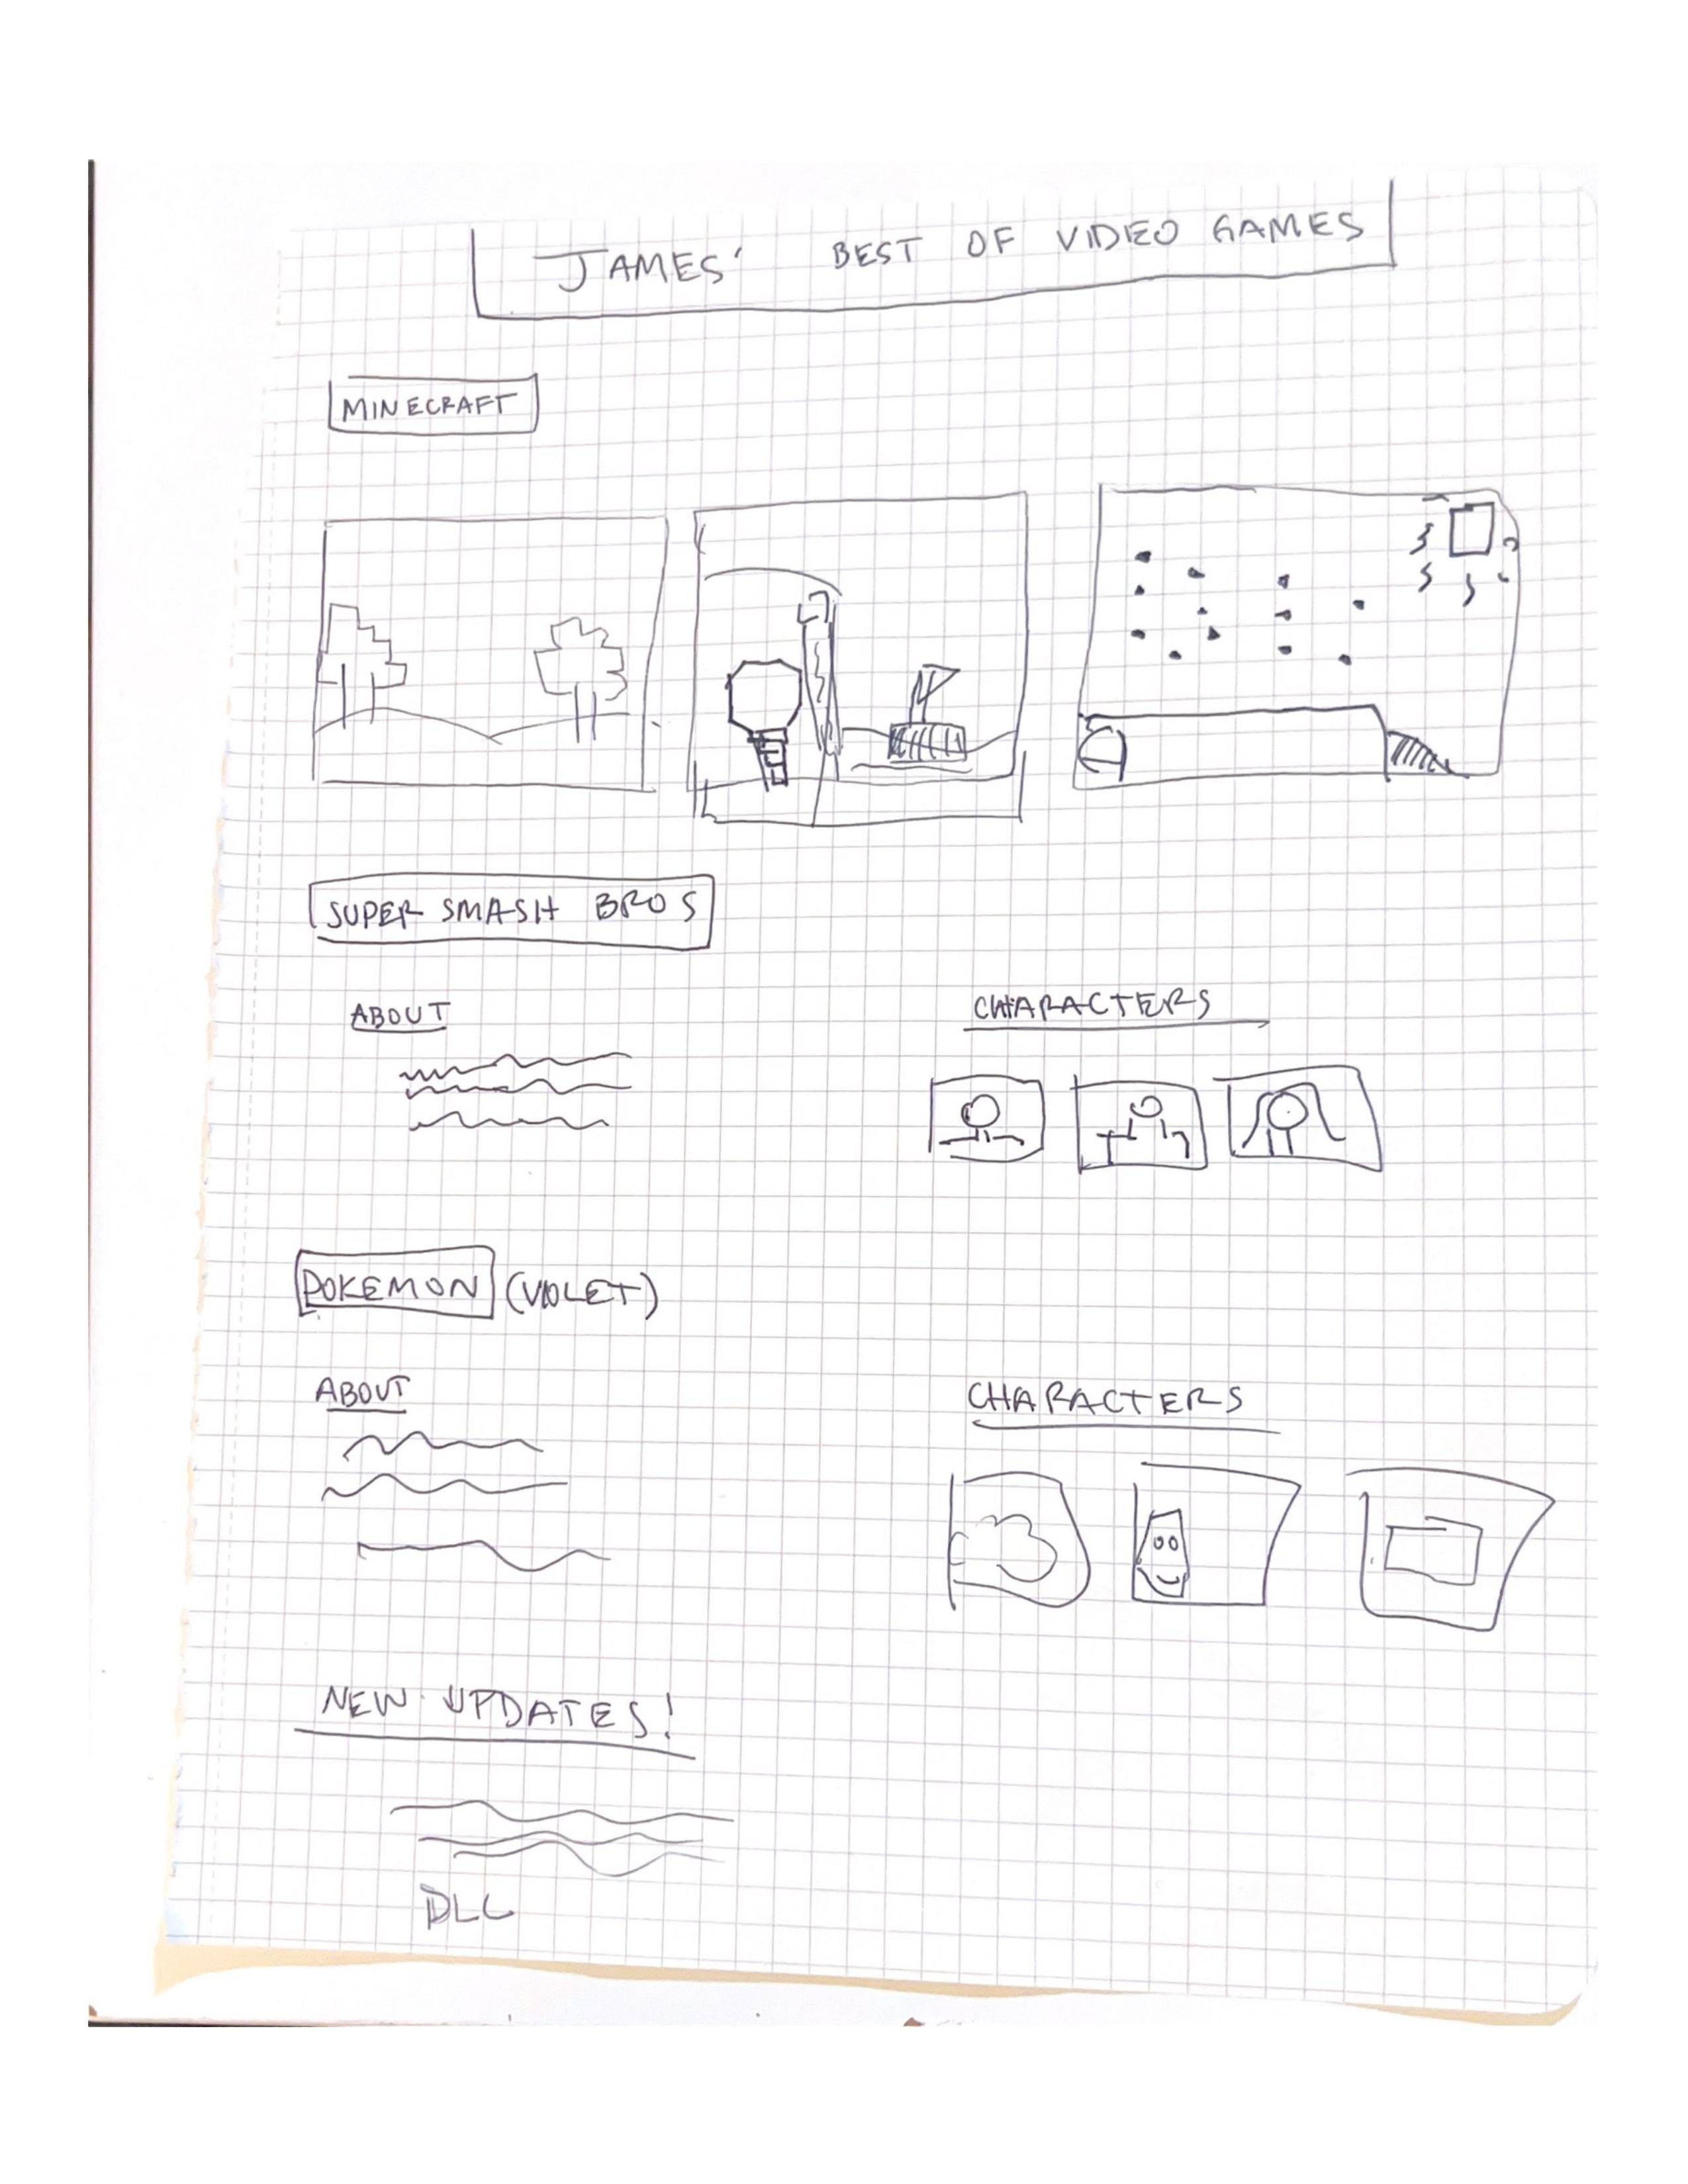 JAMES' BEST OF VIDEO GAMES
MINECRAFT
SUPER SMASH BROS
ABOUT
CHARACTERS
POKEMON (VIOLET)
ABOUT
CHARACTERS
NEW UPDATES!
DLC